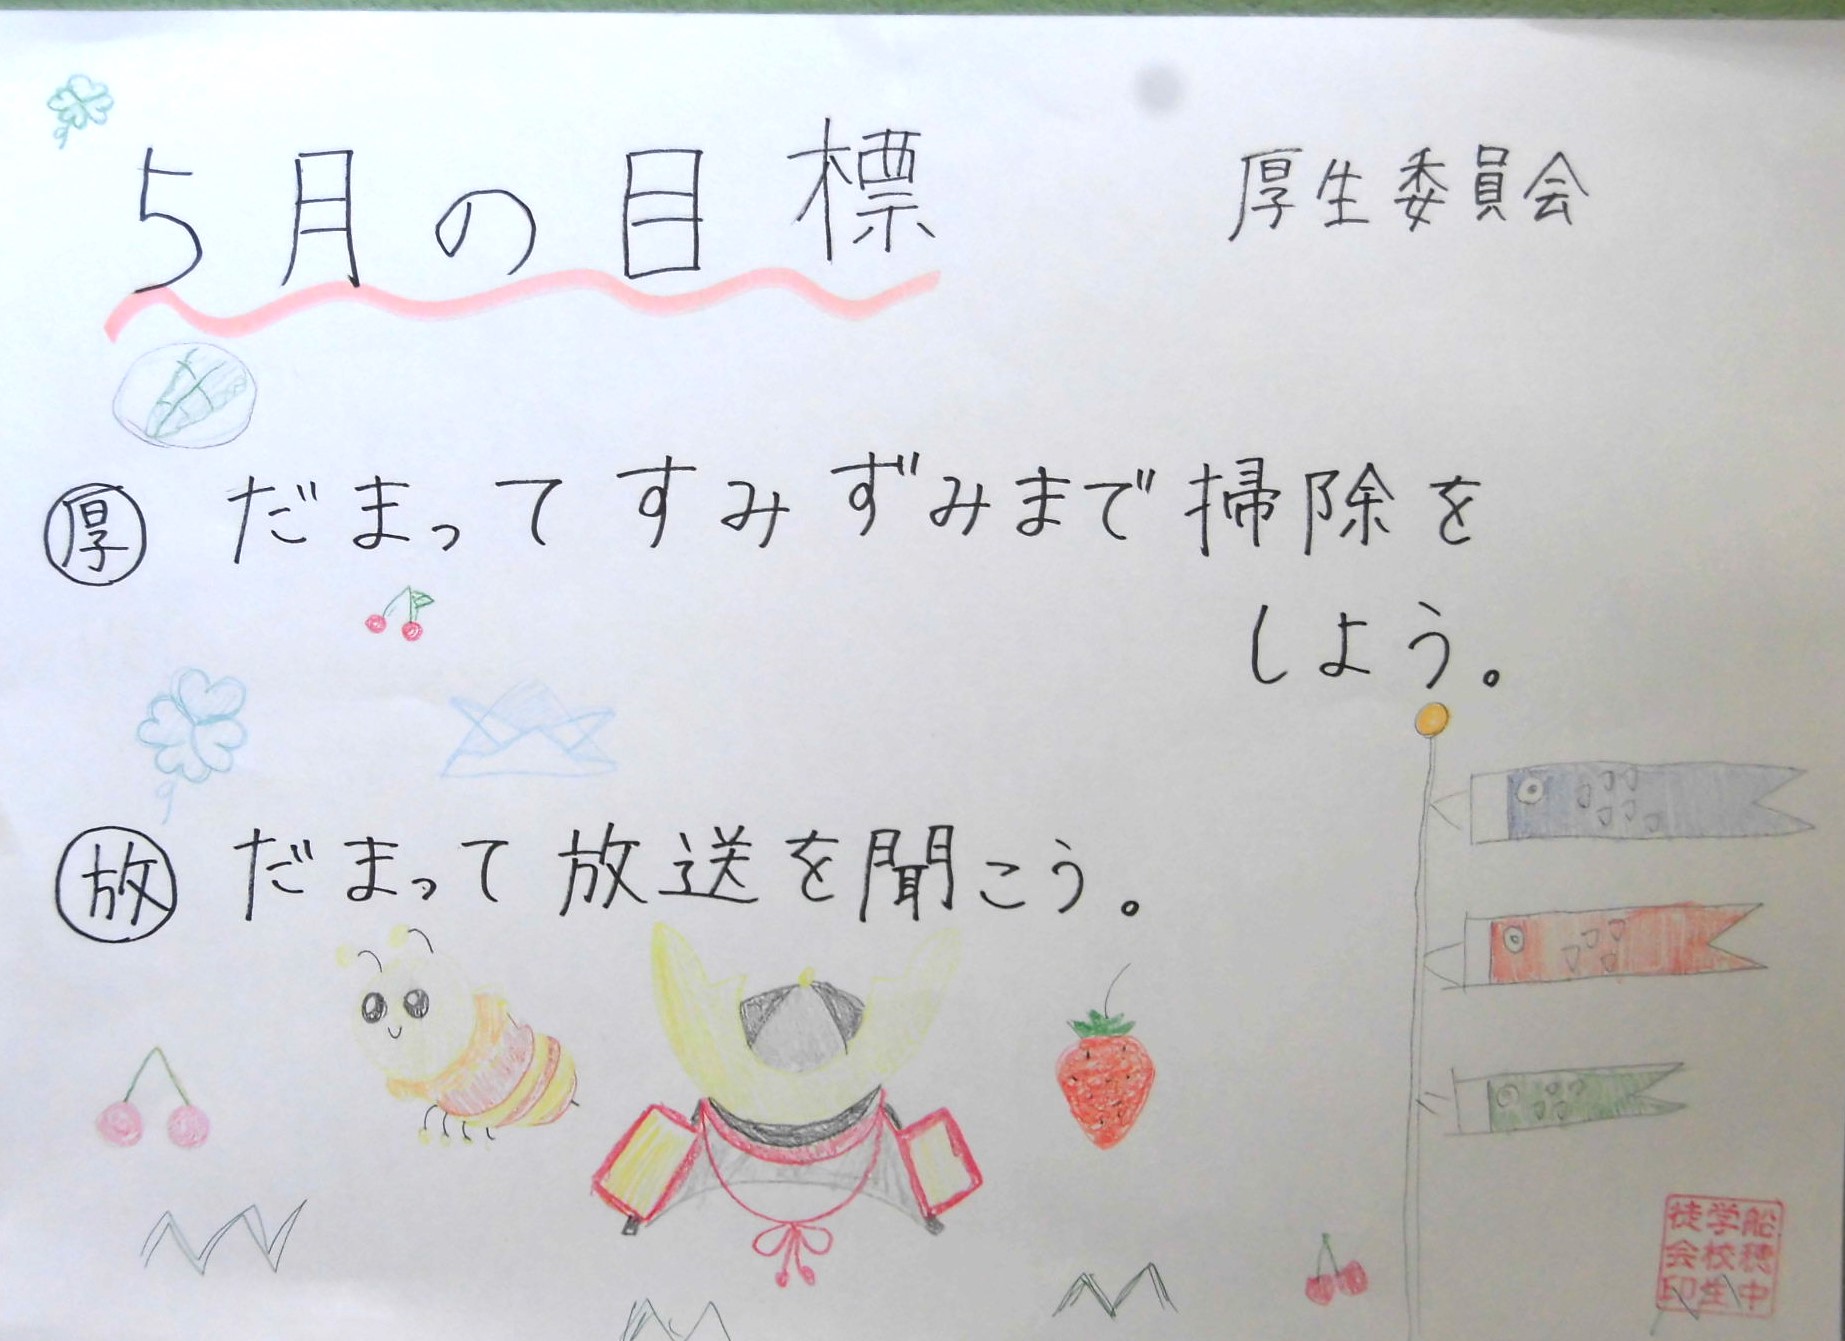 5月の目標
厚生委員会
厚 だまってすみずみまで掃除を
しよう。
放 だまって放送を聞こう。
船穂中
学校生
徒会印